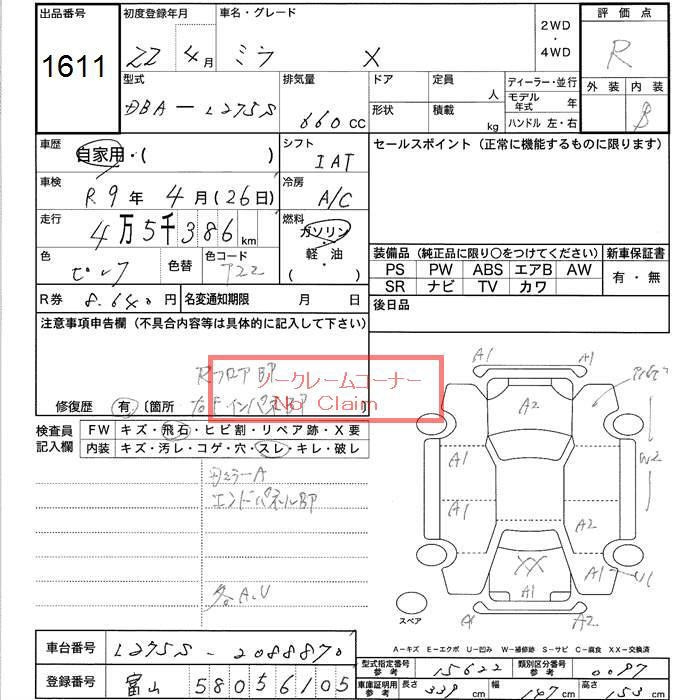 出品番号 1611
初度登録年月 22年 4月
車名・グレード ミラ X
2WD・4WD
評価点 R
外装 内装 B
型式 DBA-L275S
排気量 660cc
ドア 定員 人
形状 積載 kg
ディーラー・並行
モデル年式 年
ハンドル 左・右
車歴 自家用・( )
シフト IAT
セールスポイント(正常に機能するものに限ります)
車検 R9年 4月(26日)
冷房 A/C
走行 4万5千386km
燃料 ガソリン・軽油 ( )
色 ピンク 色替 色コード T22
装備品(純正品に限り○をつけてください) 新車保証書
PS PW ABS エアB AW 有・無
SR ナビ TV カワ
R券 8,640円 名変通知期限 月 日
後日品
注意事項申告欄(不具合内容等は具体的に記入して下さい)
RフロアBP
ノークレームコーナー
No Claim
修復歴 有・〔箇所
検査員記入欄 FW キズ・飛石・ヒビ割・リペア跡・X要
内装 キズ・汚レ・コゲ・穴・スレ・キレ・破レ
エンドパネルBP
各A.U
A1 A1
A2
A1 W2
A1 A2
XX A1 U1
A1
A A2
スペア
A-キズ E-エクボ U-凹み W-補修跡 S-サビ C-腐食 XX-交換済
車台番号 L275S-2088870
登録番号 富山 580 5 6105
型式指定番号 参考 15622 類別区分番号 参考 0097
車庫証明用 参考 長さ 339cm 幅 147cm 高さ 153cm